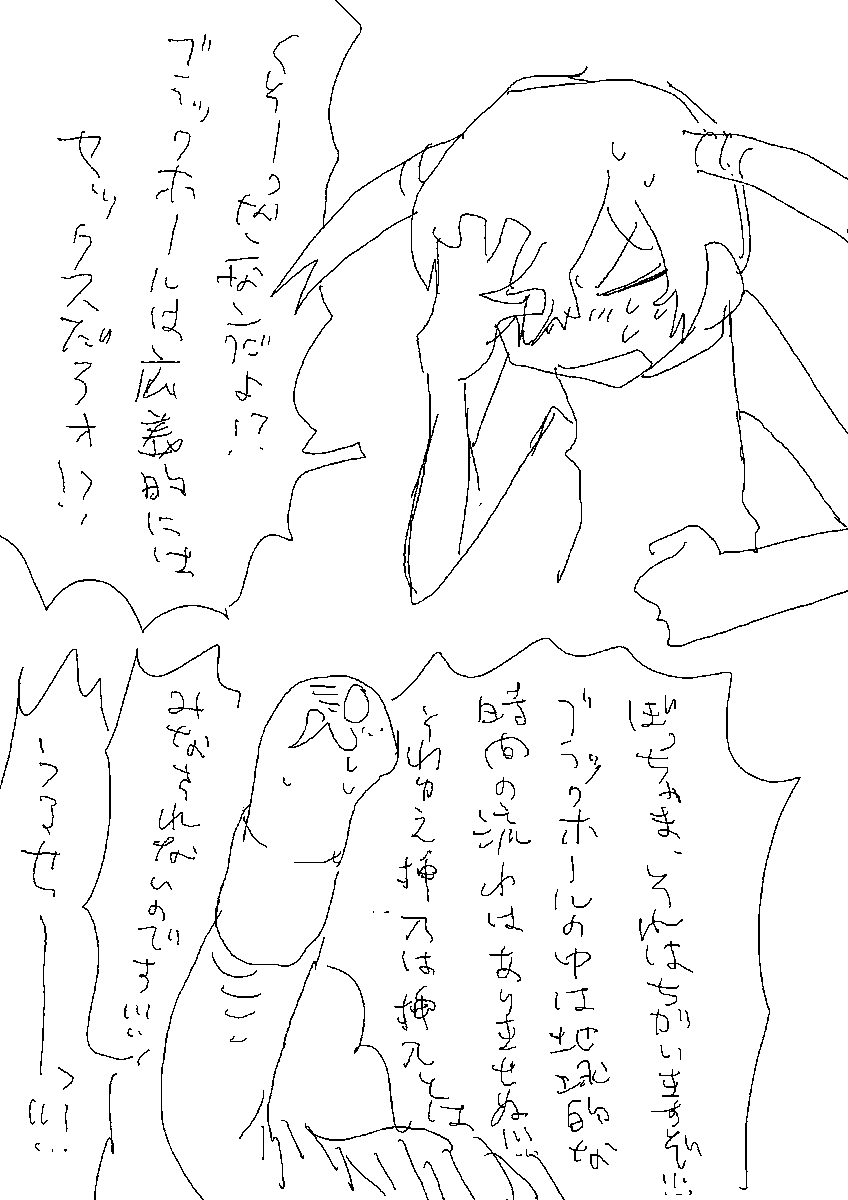 くそーっなんなんだよ!?
ブラックホールは広義的には
セックスだろォ!?
ぼっちゃま、それはちがいますぞ!!!
ブラックホールの中は地球的な
時間の流れはありませぬ!!!
とれゆえ挿入は挿入とは
みなされないのです!!!
うるせーーっ!!!